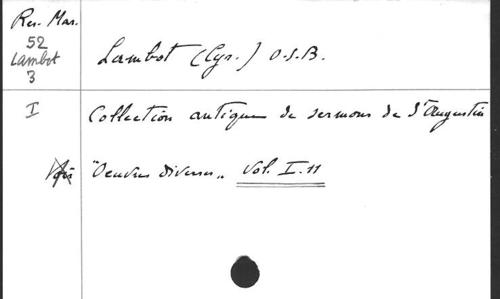 Rev. Mar.
52
Lambot
3
Lambot (Cyr.) O.S.B.
I
Collection antique de sermons de S. Augustin
Voir "Oeuvres diverses" Vol. I. 11